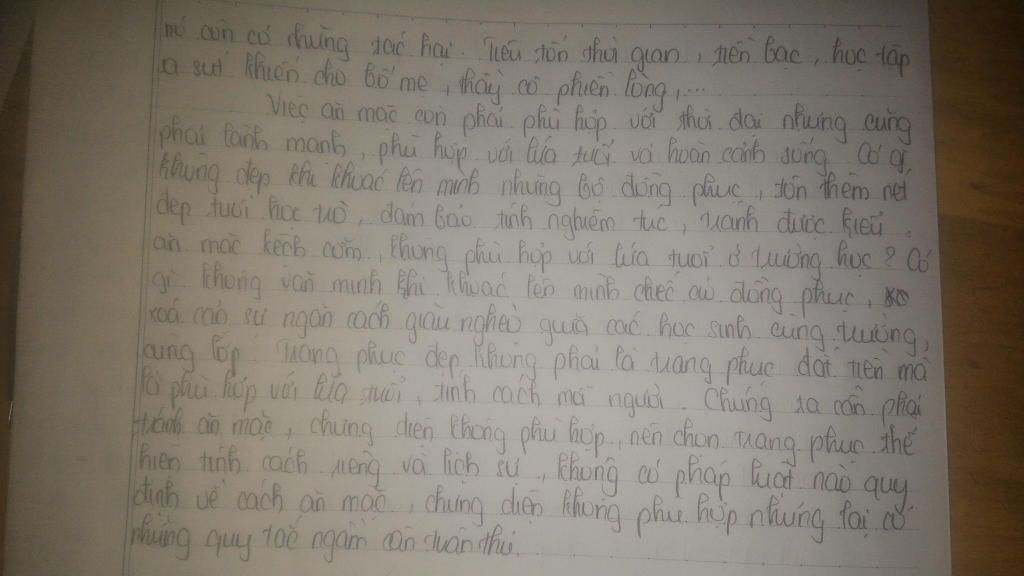 nó còn có những tác hại. Tiêu tốn thời gian, tiền bạc, học tập
sa sút khiến cho bố mẹ, thầy cô phiền lòng,...
Việc ăn mặc còn phải phù hợp với thời đại nhưng cũng
phải lành mạnh, phù hợp với lứa tuổi và hoàn cảnh sống. Có gì
không đẹp khi khoác lên mình những bộ đồng phục, tôn thêm nét
đẹp tuổi học trò, đảm bảo tính nghiêm túc, tránh được kiểu
ăn mặc kệch cỡm, không phù hợp với lứa tuổi ở trường học? Có
gì không văn minh khi khoác lên mình chiếc áo đồng phục,
xoá cả sự ngăn cách giàu nghèo giữa các học sinh cùng trường,
cùng lớp. Trang phục đẹp không phải là trang phục đắt tiền mà
là phù hợp với lứa tuổi, tính cách mỗi người. Chúng ta cần phải
tránh ăn mặc, chưng diện không phù hợp, nên chọn trang phục thể
hiện tính cách riêng và lịch sự, không có pháp luật nào quy
định về cách ăn mặc, chưng diện không phù hợp nhưng lại có
những quy tắc ngầm cần tuân thủ.